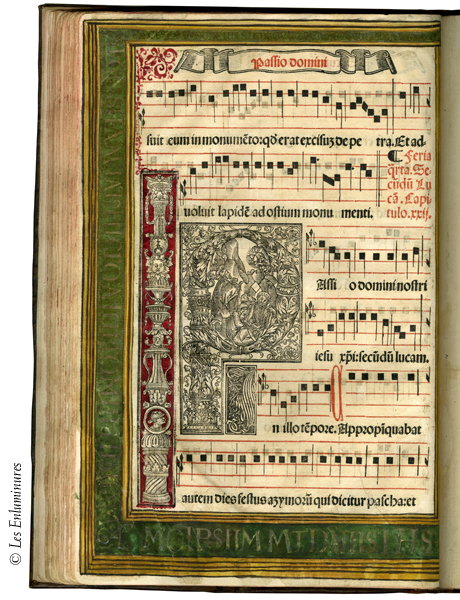 Passio domini
suit eum in monumēto: qd̄ erat excisuʒ de pe tra. Et ad-
¶ Feria
q̄rta. Se
cūdū Lu
cā. Capi
tulo. xxij.
uoluit lapidē ad ostium monu menti.
Assi o domini nostri
iesu xp̄i: secūdū lucam.
n illo tēpore. Appropīquabat
autem dies festus azymorū qui dicitur pascha: et
© Les Enluminures